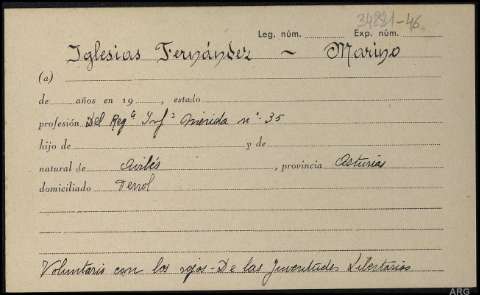 34821-46.
Leg. núm. Exp. núm.
Iglesias Fernández - Marino
(a)
de años en 19 , estado
profesión Del Regº Infª Merida nº: 35
hijo de y de
natural de Avilés , provincia Asturias
domiciliado Ferrol
Voluntario con los rojos - De las Juventudes Libertarias
ARG